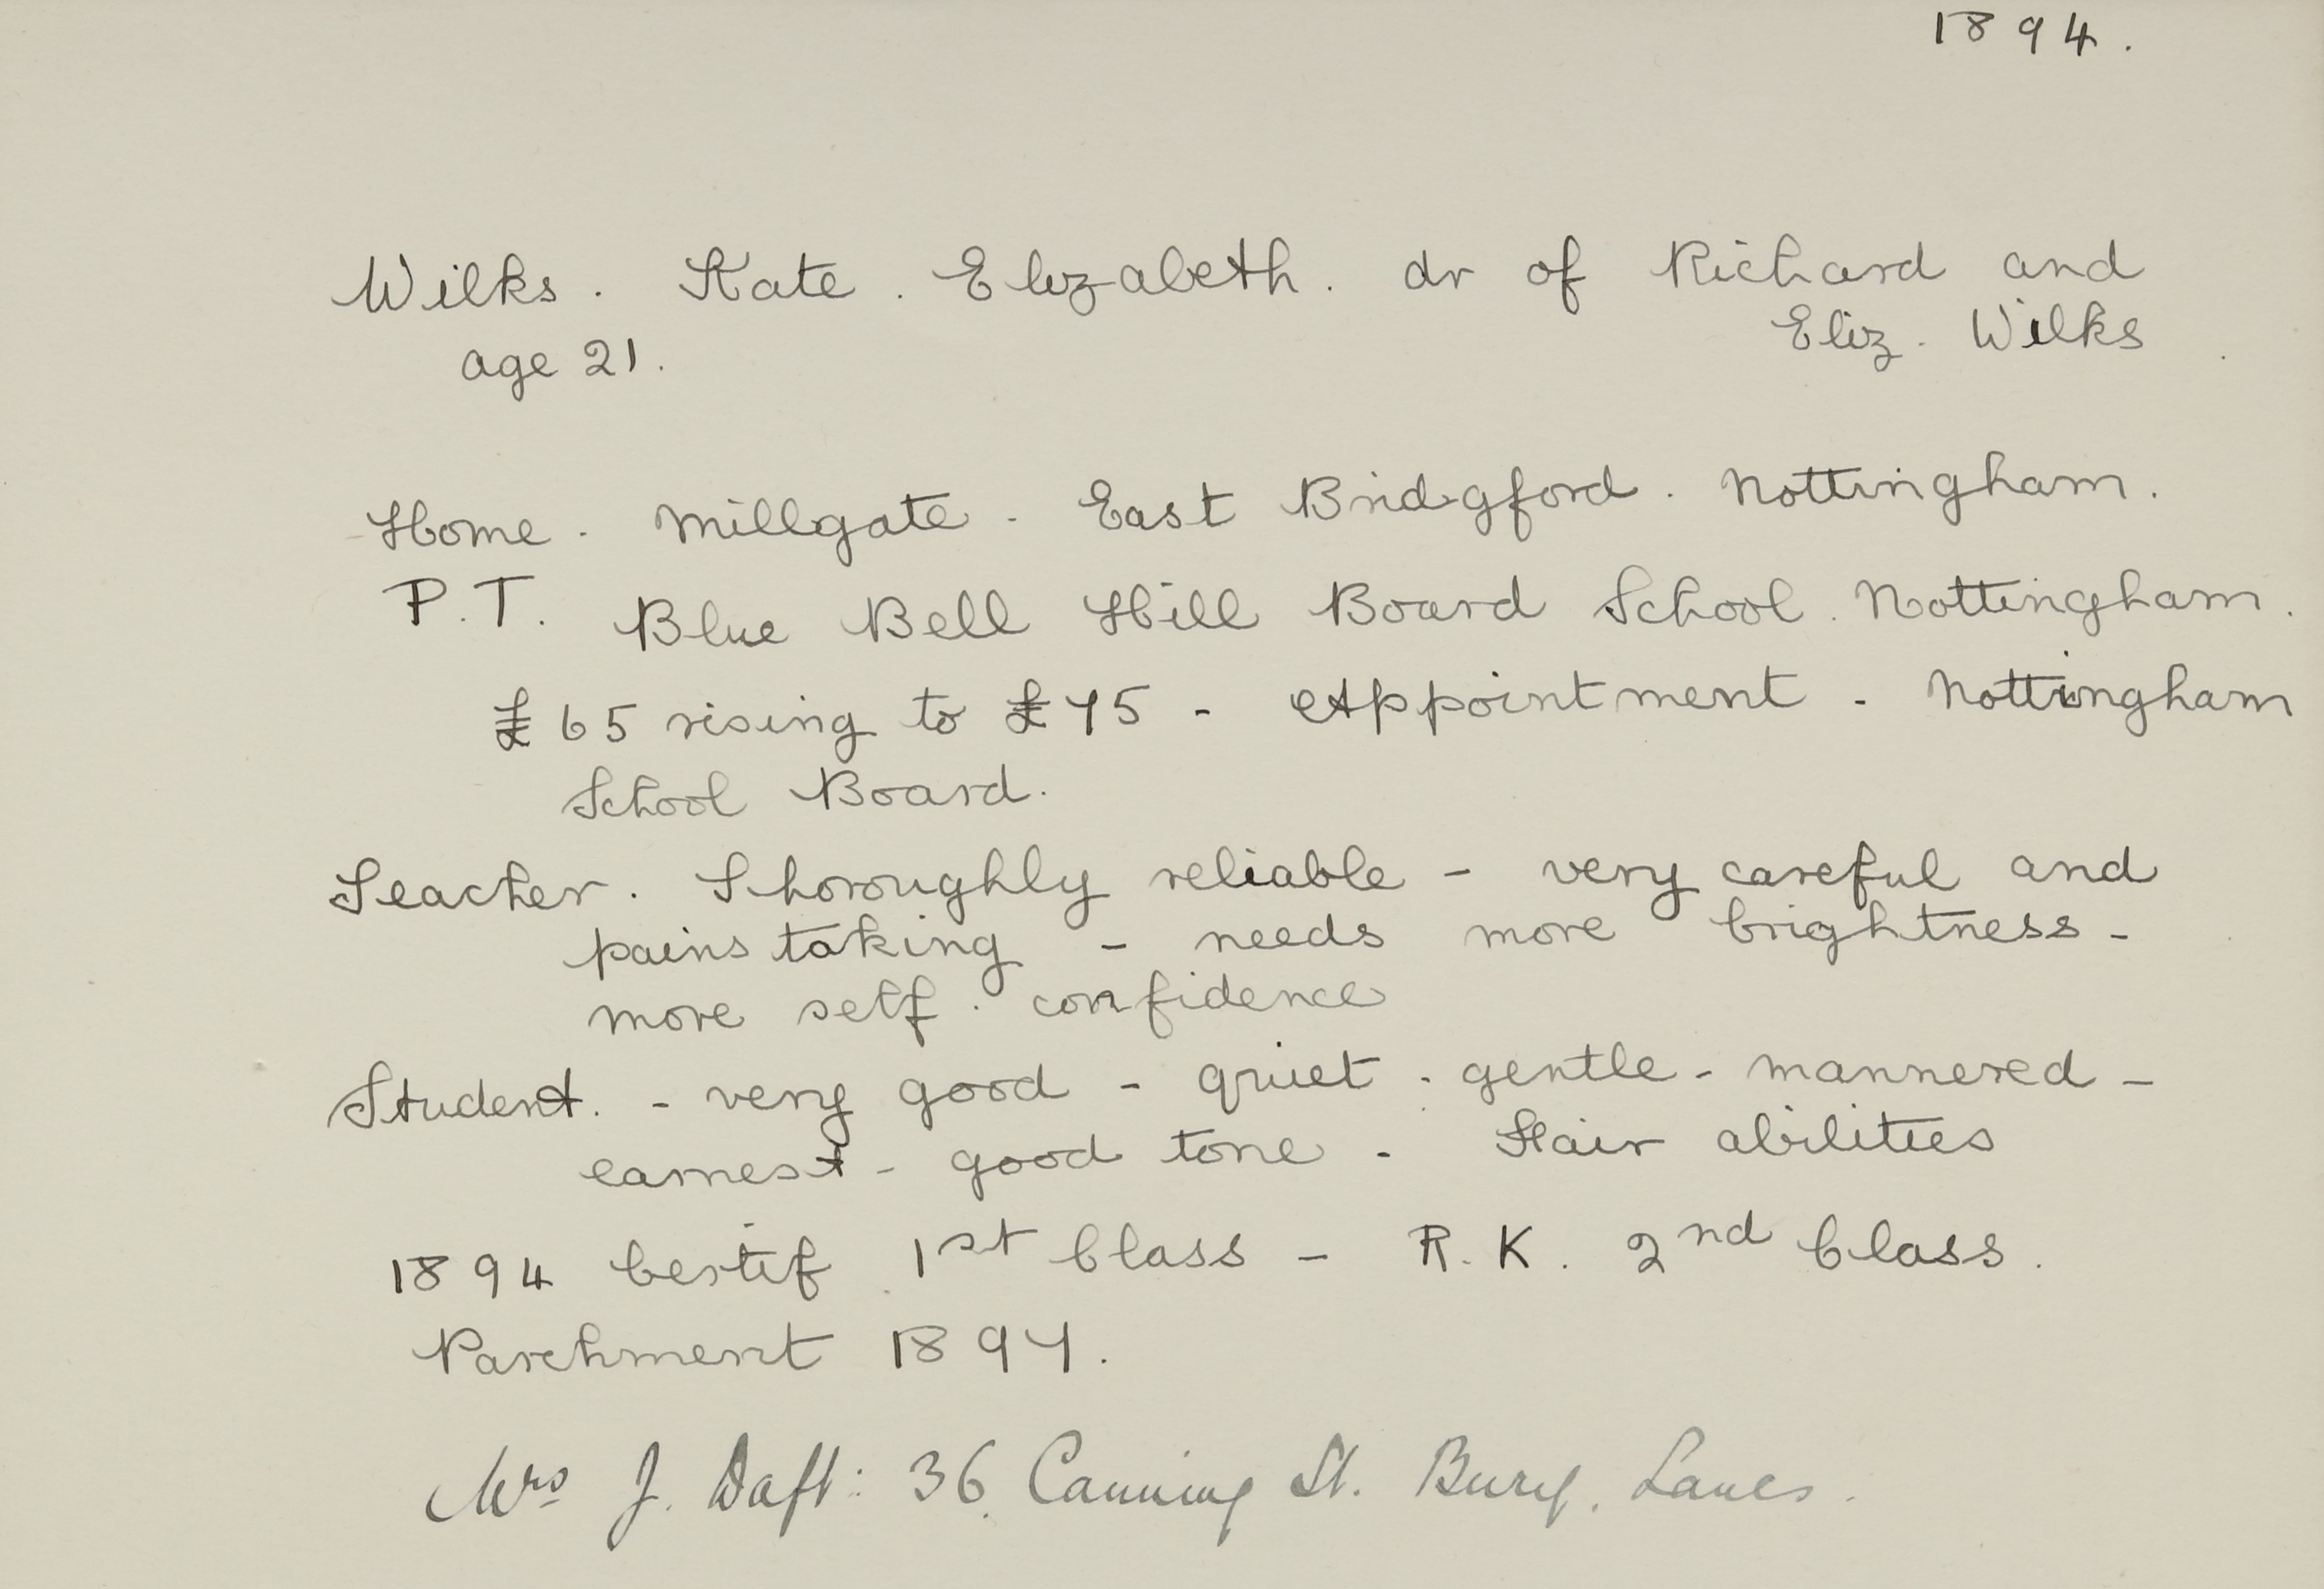 1894.
Wilks. Kate. Elizabeth. dr of Richard and
Eliz. Wilks
age 21.
Home. Millgate. East Bridgford. Nottingham.
P.T. Blue Bell Hill Board School. Nottingham.
£65 rising to £75 - Appointment - Nottingham
School Board.
Teacher. Thoroughly reliable - very careful and
painstaking - needs more brightness -
more self. confidence
Student. - very good - quiet. gentle-mannered -
earnest - good tone - Fair abilities
1894 Certif 1st Class - R.K. 2nd Class.
Parchment 1897.
Mrs J. Daft: 36. Canning St. Bury. Lancs.